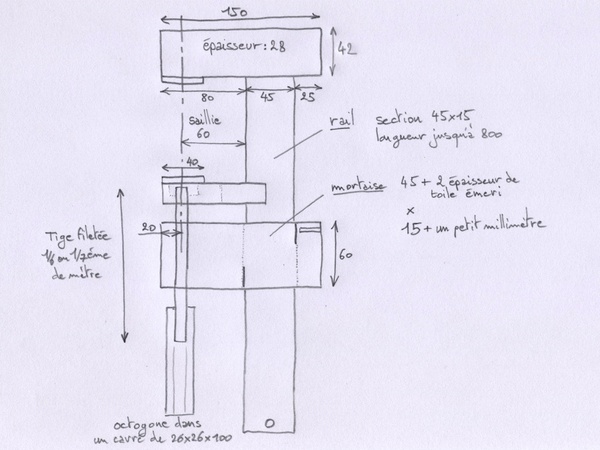 150
épaisseur : 28
42
80
45
25
saillie
60
rail
section 45x15
longueur jusqu'à 800
40
mortaise
45 + 2 épaisseur de
toile émeri
x
15 + un petit millimètre
20
Tige filetée
1/6 ou 1/7ème
de mètre
60
octogone dans
un carré de 26x26x100